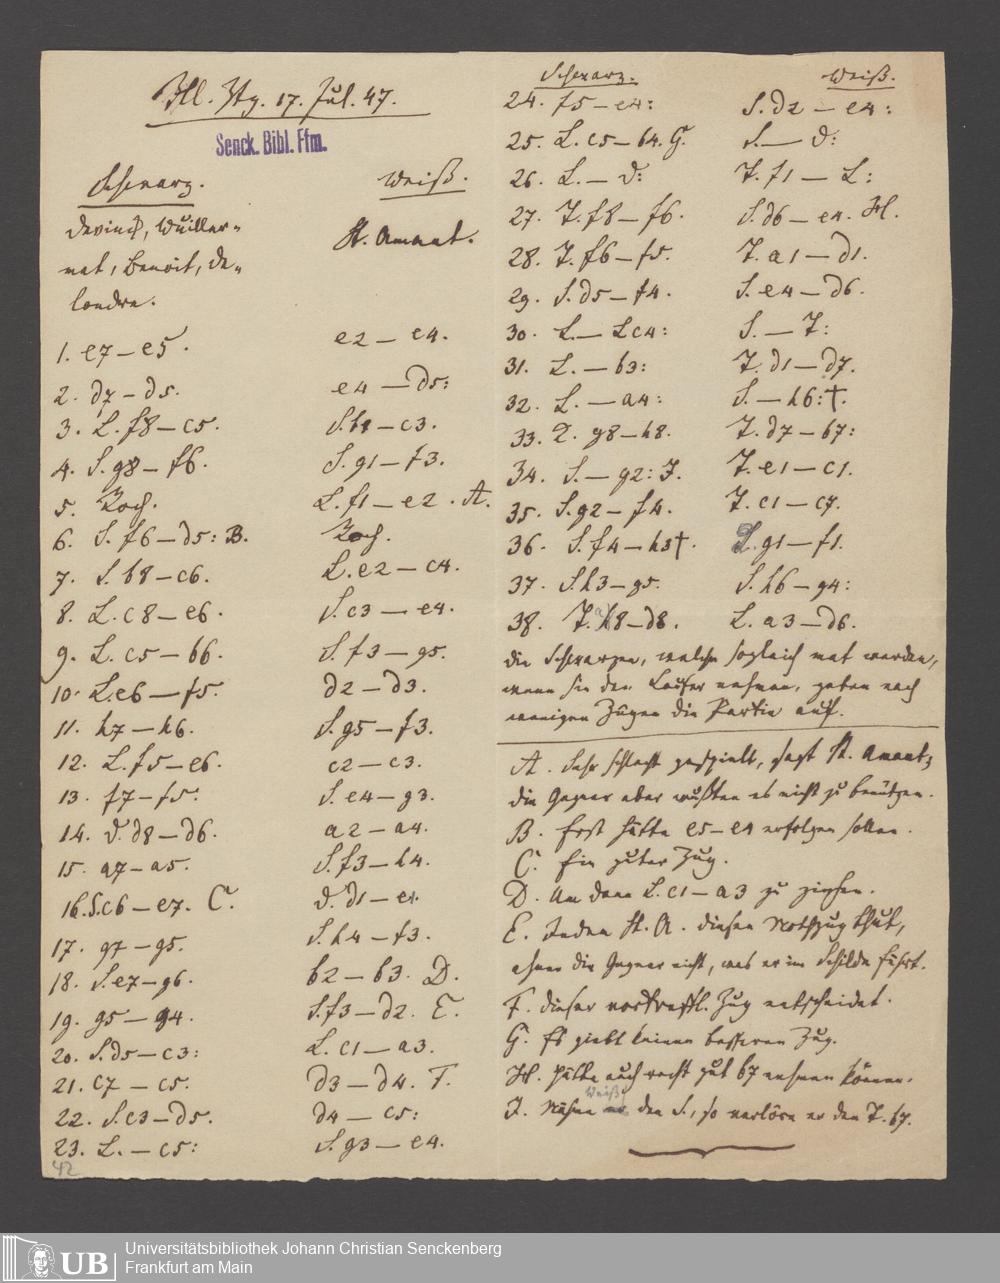 Ill. Ztg. 17. Jul. 47.
Senck. Bibl. Ffm.
Schwarz. Weiß.
Devinck, Wuiller-
met, Benoit, De-
londre.
St. Amant.
1. e7 — e5. e2 — e4.
2. d7 — d5. e4 — d5:
3. L. f8 — c5. S. b1 — c3.
4. S. g8 — f6. S. g1 — f3.
5. Roch. L. f1 — e2. A.
6. S. f6 — d5: B. Roch.
7. S. b8 — c6. L. e2 — c4.
8. L. c8 — e6. S. c3 — e4.
9. L. c5 — b6. S. f3 — g5.
10. L. e6 — f5. d2 — d3.
11. h7 — h6. S. g5 — f3.
12. L. f5 — e6. c2 — c3.
13. f7 — f5. S. e4 — g3.
14. D. d8 — d6. a2 — a4.
15. a7 — a5. S. f3 — h4.
16. S. c6 — e7. C. D. d1 — e1
17. g7 — g5. S. h4 — f3.
18. S. e7 — g6. b2 — b3. D.
19. g5 — g4. S. f3 — d2. E.
20. S. d5 — c3: L. c1 — a3.
21. c7 — c5. d3 — d4. F.
22. S. c3 — d5. d4 — c5:
23. L. — c5: S. g3 — e4.
42
Schwarz. Weiß.
24. f5 — e4: S. d2 — e4:
25. L. c5 — b4. G. S. — D:
26. L. — D: T. f1 — L:
27. T. f8 — f6. S. d6 — e4. H.
28. T. f6 — f5. T. a1 — d1.
29. S. d5 — f4. S. e4 — d6.
30. L. — L c4: S. — T:
31. L. — b3: T. d1 — d7.
32. L. — a4: S. — h6:†.
33. K. g8 — h8. T. d7 — b7:
34. S. — g2: J. T. e1 — c1.
35. S. g2 — f4. T. c1 — c7.
36. S. f4 — h3†. K. g1 — f1.
37. S. h3 — g5. S. h6 — g4:
38. T. a8 — d8. L. a3 — d6.
die Schwarzen, welche sogleich mat werden,
wenn sie den Läufer nehmen, geben nach
wenigen Zügen die Partie auf.
A. Sehr schlecht gespielt, sagt St. Amant;
die Gegner aber wußten es nicht zu benützen.
B. Erst hätte e5 — e4 erfolgen sollen.
C. Ein guter Zug.
D. Um dann L. c1 — a3 zu ziehen.
E. Indem St. A. diesen Nothzug thut,
ahnen die Gegner nicht, was er im Schilde führt.
F. Dieser vortreffl. Zug entscheidet.
G. Es giebt keinen besseren Zug.
H. Hätte auch recht gut b7 nehmen können.
Weiß
J. Nähme er den S., so verlöre er den T. b7.
Universitätsbibliothek Johann Christian Senckenberg
Frankfurt am Main
UB